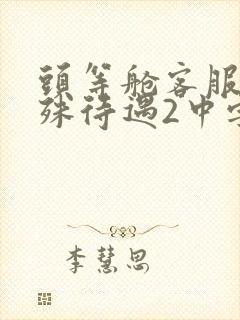 頭等舱客服
殊待遇2中字
李慧思